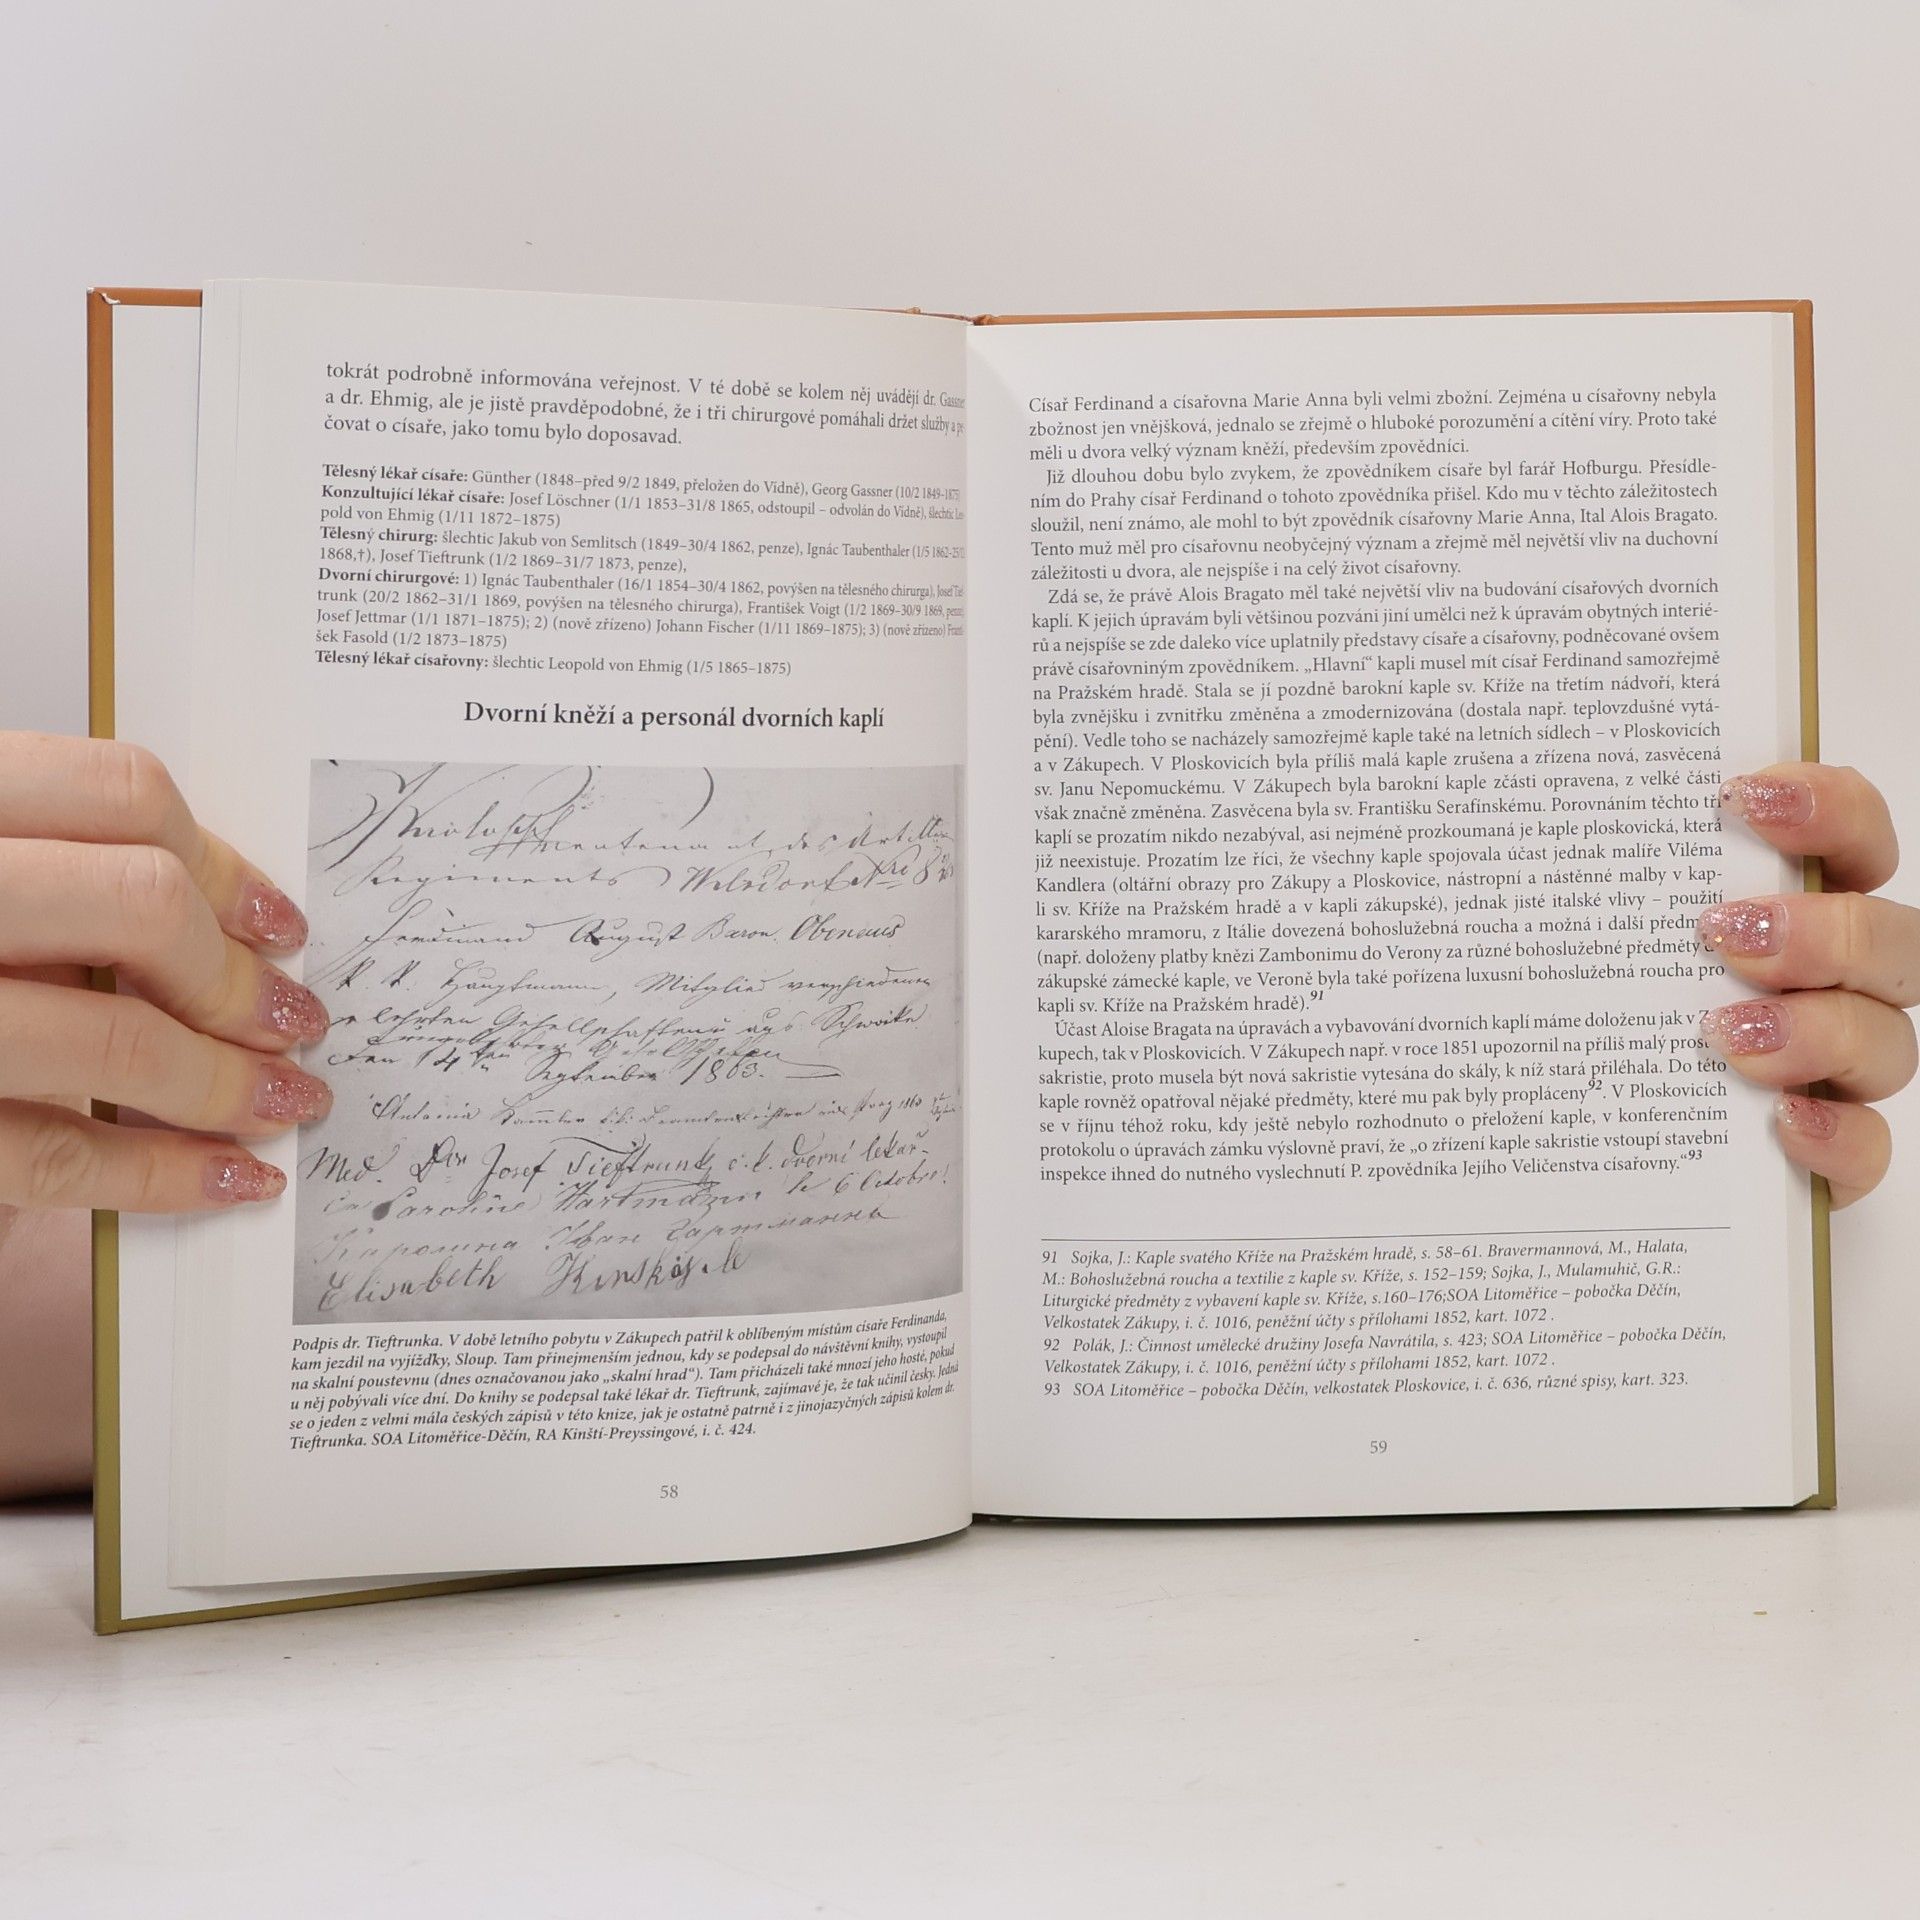 tokrát podrobně informována veřejnost. V té době se kolem něj uvádějí dr. Gassner
a dr. Ehmig, ale je jistě pravděpodobné, že i tři chirurgové pomáhali držet služby a pe-
čovat o císaře, jako tomu bylo doposavad.
Tělesný lékař císaře: Günther (1848–před 9/2 1849, přeložen do Vídně), Georg Gassner (10/2 1849-1875)
Konzultující lékař císaře: Josef Löschner (1/1 1853–31/8 1865, odstoupil – odvolán do Vídně), šlechtic Leo-
pold von Ehmig (1/11 1872–1875)
Tělesný chirurg: šlechtic Jakub von Semlitsch (1849–30/4 1862, penze), Ignác Taubenthaler (1/5 1862-
1868,†), Josef Tieftrunk (1/2 1869–31/7 1873, penze),
Dvorní chirurgové: 1) Ignác Taubenthaler (16/1 1854–30/4 1862, povýšen na tělesného chirurga), Josef Tief-
trunk (20/2 1862–31/1 1869, povýšen na tělesného chirurga), František Voigt (1/2 1869–30/9 1869, penze)
Josef Jettmar (1/1 1871–1875); 2) (nově zřízeno) Johann Fischer (1/11 1869–1875); 3) (nově zřízeno) Franti-
šek Fasold (1/2 1873–1875)
Tělesný lékař císařovny: šlechtic Leopold von Ehmig (1/5 1865–1875)
Dvorní kněží a personál dvorních kaplí
des
Regiments Nro 8
Ferdinand August Baron Obenaus
K. K. Hauptmann, Mitglied verschiedener
gelehrten Gesellschaften aus Schwaike
den 14ten September 1863.
Antonia
Med. Dr. Josef Tieftrunk c. k. dvorní lekař
Caroline Hartmann le 6 Octobre!
Elisabeth Kinsky
Podpis dr. Tieftrunka. V době letního pobytu v Zákupech patřil k oblíbeným místům císaře Ferdinanda,
kam jezdil na vyjížďky, Sloup. Tam přinejmenším jednou, kdy se podepsal do návštěvní knihy, vystoupil
na skalní poustevnu (dnes označovanou jako „skalní hrad“). Tam přicházeli také mnozí jeho hosté, pokud
u něj pobývali více dní. Do knihy se podepsal také lékař dr. Tieftrunk, zajímavé je, že tak učinil česky. Jedná
se o jeden z velmi mála českých zápisů v této knize, jak je ostatně patrné i z jinojazyčných zápisů kolem dr.
Tieftrunka. SOA Litoměřice-Děčín, RA Kinští-Preyssingové, i. č. 424.
58
Císař Ferdinand a císařovna Marie Anna byli velmi zbožní. Zejména u císařovny nebyla
zbožnost jen vnějšková, jednalo se zřejmě o hluboké porozumění a cítění víry. Proto také
měli u dvora velký význam kněží, především zpovědníci.
Již dlouhou dobu bylo zvykem, že zpovědníkem císaře byl farář Hofburgu. Přesídle-
ním do Prahy císař Ferdinand o tohoto zpovědníka přišel. Kdo mu v těchto záležitostech
sloužil, není známo, ale mohl to být zpovědník císařovny Marie Anna, Ital Alois Bragato.
Tento muž měl pro císařovnu neobyčejný význam a zřejmě měl největší vliv na duchovní
záležitosti u dvora, ale nejspíše i na celý život císařovny.
Zdá se, že právě Alois Bragato měl také největší vliv na budování císařových dvorních
kaplí. K jejich úpravám byli většinou pozváni jiní umělci než k úpravám obytných interié-
rů a nejspíše se zde daleko více uplatnily představy císaře a císařovny, podněcované ovšem
právě císařovniným zpovědníkem. „Hlavní“ kapli musel mít císař Ferdinand samozřejmě
na Pražském hradě. Stala se jí pozdně barokní kaple sv. Kříže na třetím nádvoří, která
byla zvnějšku i zvnitřku změněna a zmodernizována (dostala např. teplovzdušné vytá-
pění). Vedle toho se nacházely samozřejmě kaple také na letních sídlech – v Ploskovicích
a v Zákupech. V Ploskovicích byla příliš malá kaple zrušena a zřízena nová, zasvěcená
sv. Janu Nepomuckému. V Zákupech byla barokní kaple zčásti opravena, z velké části
však značně změněna. Zasvěcena byla sv. Františku Serafínskému. Porovnáním těchto tří
kaplí se prozatím nikdo nezabýval, asi nejméně prozkoumaná je kaple ploskovická, která
již neexistuje. Prozatím lze říci, že všechny kaple spojovala účast jednak malíře Viléma
Kandlera (oltářní obrazy pro Zákupy a Ploskovice, nástropní a nástěnné malby v kap-
li sv. Kříže na Pražském hradě a v kapli zákupské), jednak jisté italské vlivy – použití
kararského mramoru, z Itálie dovezená bohoslužebná roucha a možná i další předm
(např. doloženy platby knězi Zambonimu do Verony za různé bohoslužebné předměty
zákupské zámecké kaple, ve Veroně byla také pořízena luxusní bohoslužebná roucha pro
kapli sv. Kříže na Pražském hradě).91
Účast Aloise Bragata na úpravách a vybavování dvorních kaplí máme doloženu jak v Z
kupech, tak v Ploskovicích. V Zákupech např. v roce 1851 upozornil na příliš malý prost
sakristie, proto musela být nová sakristie vytesána do skály, k níž stará přiléhala. Do této
kaple rovněž opatřoval nějaké předměty, které mu pak byly propláceny92. V Ploskovicích
se v říjnu téhož roku, kdy ještě nebylo rozhodnuto o přeložení kaple, v konferenčním
protokolu o úpravách zámku výslovně praví, že „o zřízení kaple sakristie vstoupí stavební
inspekce ihned do nutného vyslechnutí P. zpovědníka Jejího Veličenstva císařovny.“93
91 Sojka, J.: Kaple svatého Kříže na Pražském hradě, s. 58–61. Bravermannová, M., Halata,
M.: Bohoslužebná roucha a textilie z kaple sv. Kříže, s. 152–159; Sojka, J., Mulamuhič, G.R.:
Liturgické předměty z vybavení kaple sv. Kříže, s.160–176;SOA Litoměřice – pobočka Děčín,
Velkostatek Zákupy, i. č. 1016, peněžní účty s přílohami 1852, kart. 1072 .
92 Polák, J.: Činnost umělecké družiny Josefa Navrátila, s. 423; SOA Litoměřice – pobočka Děčín,
Velkostatek Zákupy, i. č. 1016, peněžní účty s přílohami 1852, kart. 1072 .
93 SOA Litoměřice – pobočka Děčín, velkostatek Ploskovice, i. č. 636, různé spisy, kart. 323.
59